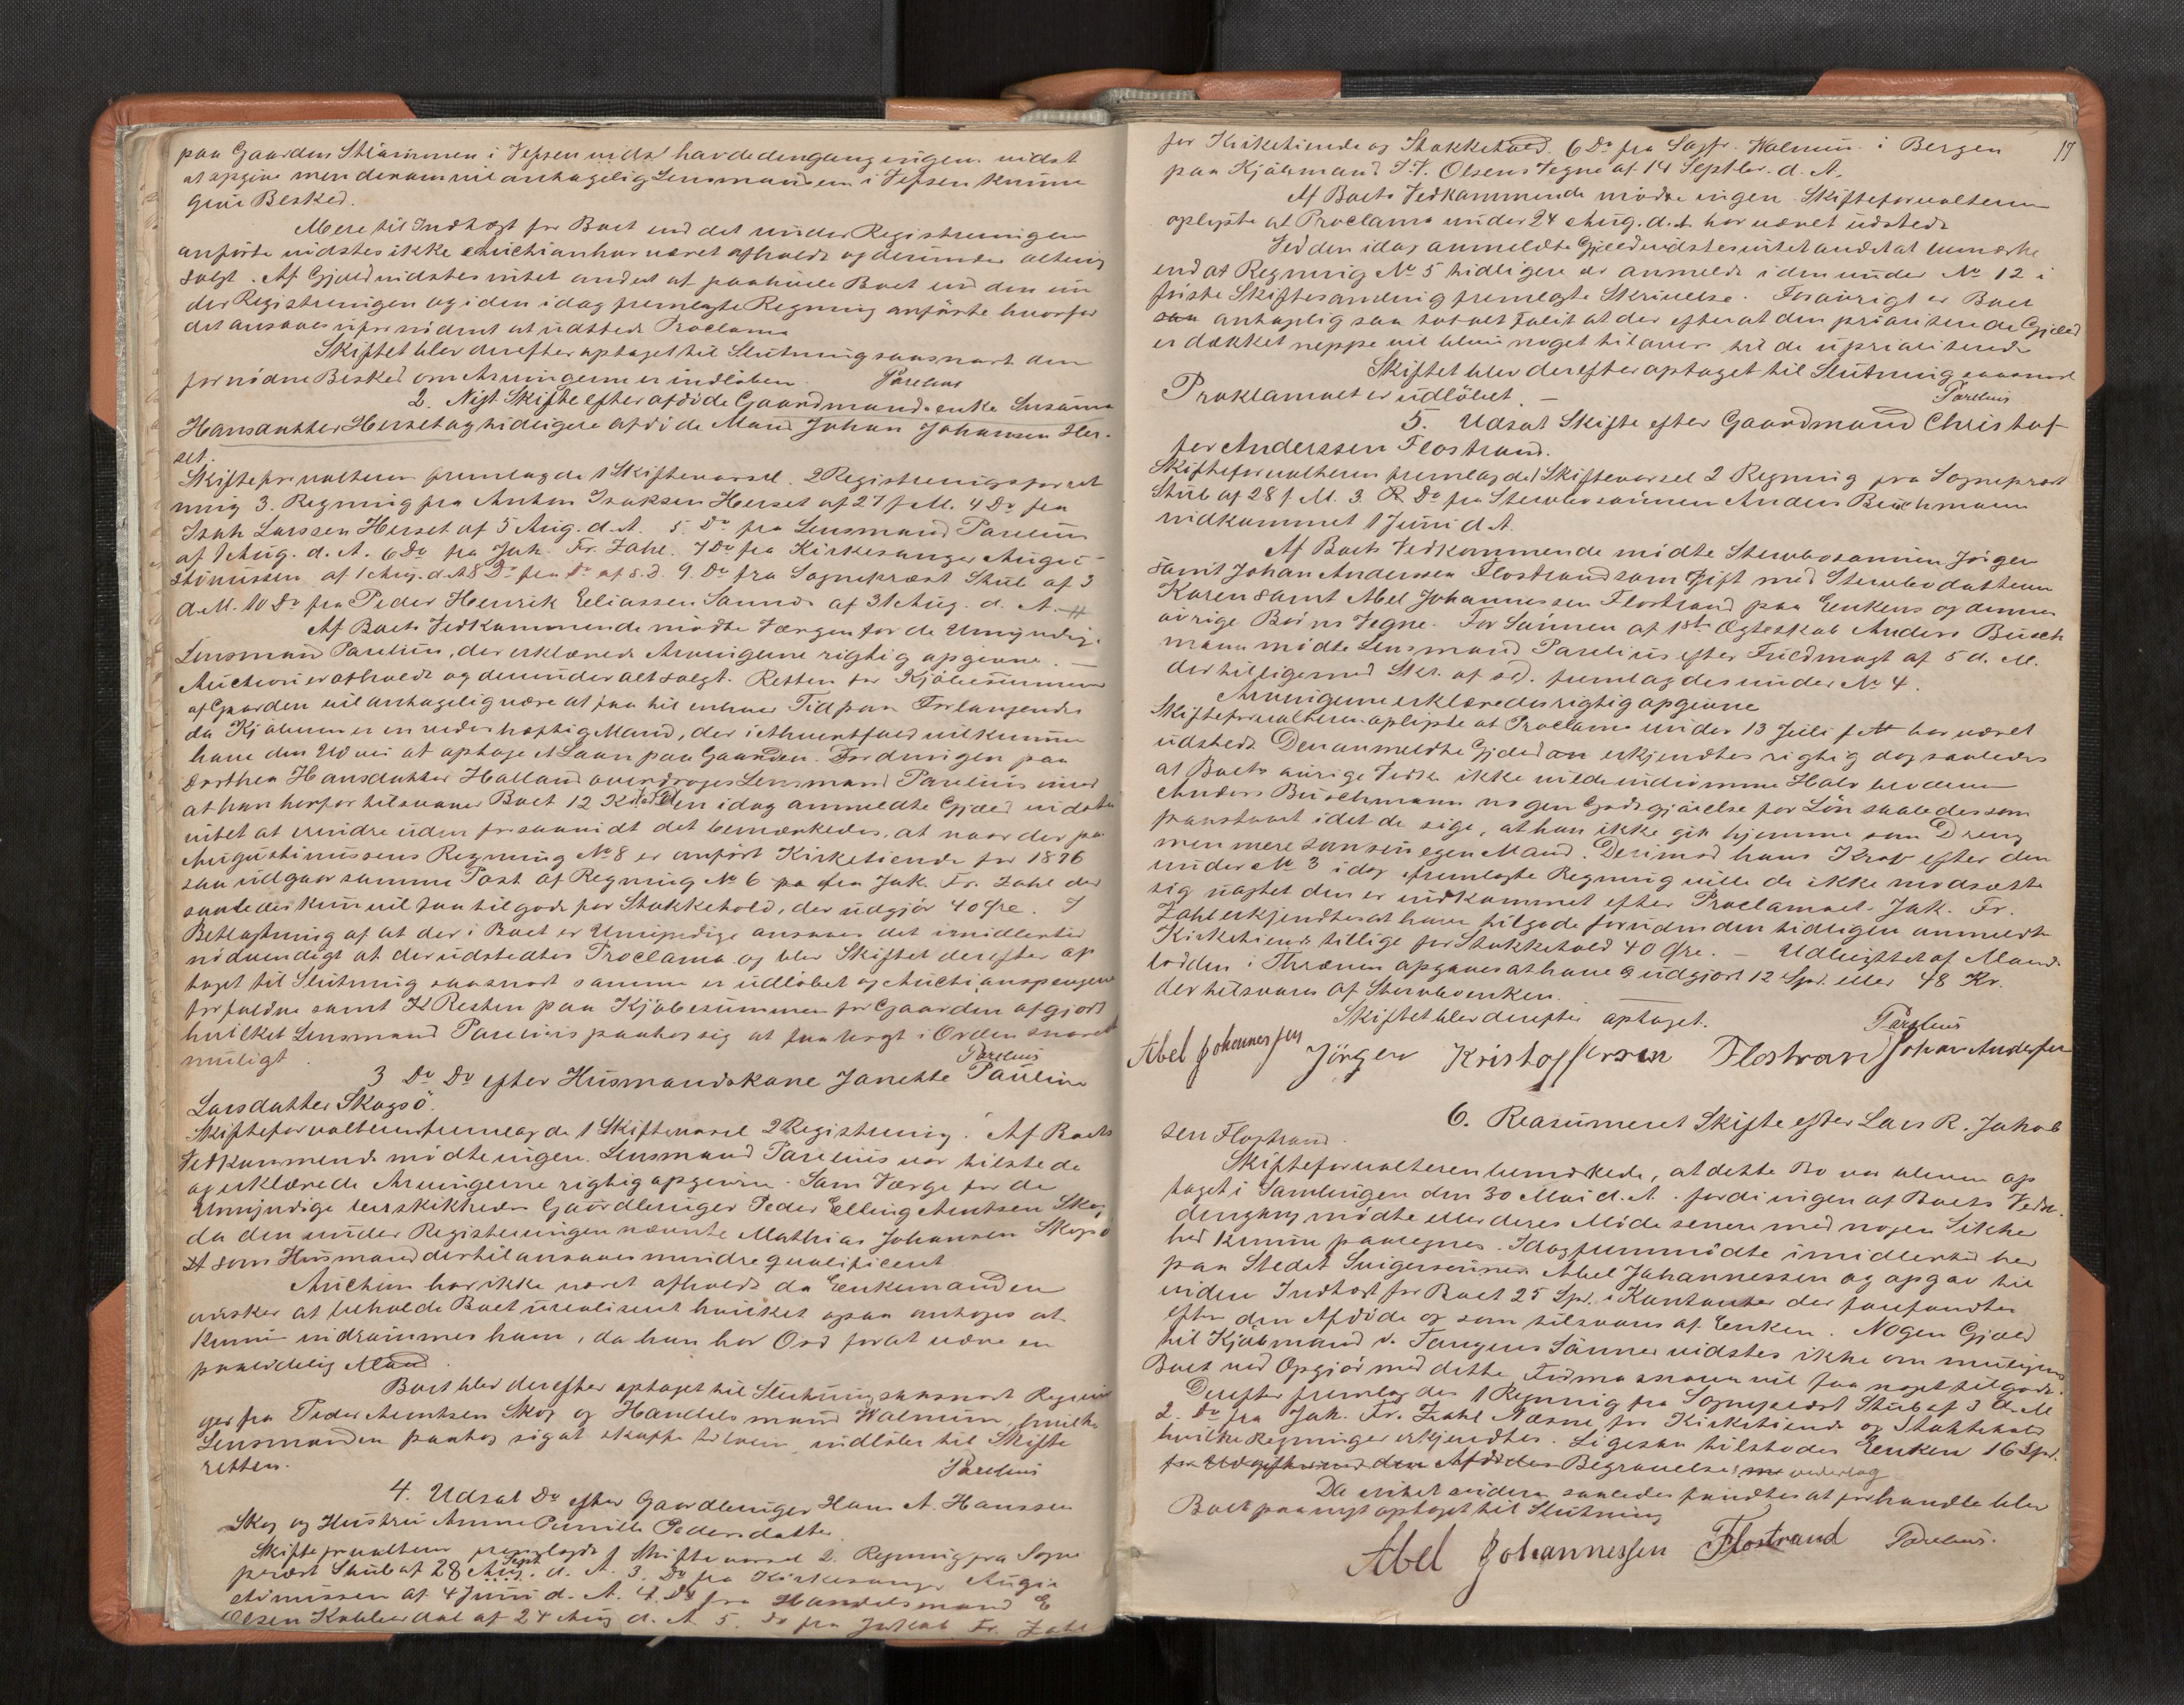 paa Gaarden Strømmen i Vefsen vidste havde dengang ingen vidst
at opgive men derom vil antagelig Lensmanden i Vefsen kunne
give Besked.
Mere til Indtægt for Boet end det under Registreringen
anførte vidstes ikke Auction har været afholdt og derunder alting
solgt. Af Gjæld vidstes intet andet at paahvile Boet end den un
der Registreringen og i den idag fremlagte Regning anførte hvorfor
det ansaaes ufornødent at udstede Proclama
Skiftet blev derefter optaget til Slutning saasnart den
fornødne Besked om Arvingerne er indløben. Parelius
2. Nyt Skifte efter afdøde Gaardmandsenke Susanna
Hansdatter Herset og tidligere afdøde Mand Johan Johansen Her-
set.
Skifteforvalteren fremlagde 1 Skiftevarsel. 2 Registreringsforret
ning 3. Regning fra Anton Isaksen Herset af 27 f. M. 4 Do fra
Isak Larssen Herset af 5 Aug. d. A. 5 Do fra Lensmand Parelius
af 1 Aug. d. A. 6 Do fra Jak. Fr. Zahl. 7 Do fra Kirkesanger Augu-
stinussen af 1 Aug. d. A 8 Do fra Do af s. D. 9. Do fra Sognepræst Stub af 3
d. M. 10 Do fra Peder Henrik Eliassen Sannd af 31 Aug. d. A.
Af Boets Vedkommende mødte Værgen for de Umyndige
Lensmand Parelius, der erklærede Arvingerne rigtig opgivne. —
Auction er afholdt og derunder alt solgt. Resten for Kjøbesummen
af Gaarden vil antagelig være at faa til enhver Tid paa Forlangende
da Kjøberen er en vederhæftig Mand, der i Ahventfald vil kunne
have den Udvei at optage et Laan paa Gaarden. Fordringen paa
Dorthea Hansdatter Halland overdroges Lensmand Parelius mod
at han herfor tilsvarer Boet 12 Kr. Ved den idag anmeldte Gjæld vidstes
intet at erindre uden forsaavidt det bemærkedes, at naar der paa
Augustinussens Regning No 8 er anført Kirketiende for 1876
saa udgaar samme Post af Regning No 6 fra Jak. Fr. Zahl der
saaledes kun vil faa tilgode for Stokkehold, der udgjør 40 Øre. I
Betragtning af at der i Boet er Umyndige ansaaes det imidlertid
nødvendigt at der udstedtes Proclama og blev Skiftet derefter op
taget til Slutning saasnart samme er udløbet og Auctionspengene
forfaldne samt Resten paa Kjøbesummen for Gaarden afgjort
hvilket Lensmand Parelius paatog sig at faa bragt i Orden snarest
muligt. Parelius
3 Do Do efter Husmandskone Janette Pauline
Larsdatter Skogsø.
Skifteforvalteren fremlagde 1 Skiftevarsel 2 Registrering. Af Boets
Vedkommende mødte ingen. Lensmand Parelius var tilstede
og erklærede Arvingerne rigtig opgivne. Som Værge for de
Umyndige beskikkedes Gaardbruger Peder Elling Arntsen Skog
da den under Registreringen nævnte Mathias Johansen Skogsø
som Husmand dertil ansaaes mindre qualificert
Auction har ikke været afholdt da Enkemanden
ønsker at beholde Boet urealisert hvilket ogsaa antoges at
kunne indrømmes ham, da han har Ord forat være en
paalidelig Mand.
Boet blev derefter optaget til Slutning saasnart Regnin
ger fra Peder Arntsen Skog og Handelsmand Walnum, hvilke
Lensmanden paatog sig at skaffe tilveie indløber til Skifte
retten. Parelius
4. Udsat Do efter Gaardbruger Hans A. Hanssen
Skog og Hustru Anne Pernille Pedersdatter
Skifteforvalteren fremlagde 1 Skiftevarsel 2. Regning fra Sogne
præst Stub af 28 Sept. d. A. 3. Do fra Kirkesanger Augu
stinussen af 4 Juni d. A. 4. Do fra Handelsmand E
Olsen Kobberdal af 24 Aug d. A. 5. Do fra Jakob Fr. Zahl
17
for Kirketiende og Stokkehold. 6 Do fra Sagf. Walnum i Bergen
paa Kjøbmand J. V. Olsens Vegne af 14 Septbr. d. A.
Af Boets Vedkommende mødte ingen. Skifteforvalteren
oplyste at Proclama under 24 Aug. d. A. har været udstedt
Ved den idag anmeldte Gjæld vidstes intet andet at bemærke
end at Regning No 5 tidligere er anmeldt i den under No 12 i
første Skiftesamling fremlagte Skrivelse. Forøvrigt er Boet
saa antagelig saa totalt falit at der efterat den prioriterede Gjæld
er dækket neppe vil blive noget tilovers til de uprioriterede
Skiftet blev derefter optaget til Slutning saasnart
Proklamaet er udløbet. — Parelius
5. Udsat Skifte efter Gaardmand Christof-
fer Anderssen Flostrand.
Skifteforvalteren fremlagde 1 Skiftevarsel 2 Regning fra Sognepræst
Stub af 28 f. M. 3. Do fra Stervbosønnen Anders Buschmann
indkommet 1 Juni d. A.
Af Boets Vedkommende mødte Stervbosønnen Jørgen
samt Johan Anderssen Flostrand som gift med Stervbodatteren
Karen samt Abel Johannessen Flostrand paa Enkens og dennes
øvrige Børns Vegne. For Sønnen af 1ste Ægteskab Anders Busch
mann mødte Lensmand Parelius efter Fuldmagt af 5 d. M.
der tilligemed Skr. af s. D. fremlagdes under No 4.
Arvingerne erklæredes rigtig opgivne
Skifteforvalteren oplyste at Proclama under 13 Juli f. A. har været
udstedt Den anmeldte Gjæld erkjendtes rigtig dog saaledes
at Boets øvrige Vedk. ikke vilde indrømme Halvbroderen
Anders Buschmann nogen Godtgjørelse for Løn saaledes som
paastaaet idet de sige, at han ikke gik hjemme som Dreng
men mere som sin egen Mand. Derimod hans Krav efter den
under No 3 idag fremlagte Regning ville de ikke modsætte
sig uagtet den er indkommet efter Proclamaet. Jak. Fr.
Zahl erkjendtes at have tilgode foruden den tidligere anmeldte
Kirketiende tillige for Stokkehold 40 Øre. — Udbyttet af Mands-
lodden i Thrænen opgaves at have udgjort 12 Spd. eller 48 Kr.
der tilsvares af Stervboenken.
Skiftet blev derefter optaget. Parelius
Abel Johannessen Jörgen Kristoffersen Flostran Johan Andersen
6. Reasumeret Skifte efter Lars R. Jakob
sen Flostrand.
Skifteforvalteren bemærkede, at dette Bo var bleven op
taget i Samlingen den 30 Mai d. A. fordi ingen af Boets Vedk.
dengang mødte eller deres Møde senere med nogen Sikker
hed kunne paaregnes. Idag fremmødte imidlertid her
paa Stedet Svigersønnen Abel Johannessen og opgav til
viden Indtægt for Boet 25 Spd. i Kontanter der forefandtes
efter den Afdøde og som tilsvares af Enken. Nogen Gjæld
til Kjøbmand v. Tangens Sønner vidstes ikke om muligens
Boet ved Opgjør med dette Firma snarere vil faa noget tilgode.
Derefter fremlagdes 1 Regning fra Sognepræst Stub af 3 d. M
2. Do fra Jak. Fr. Zahl Næsne for Kirketiende og Stokkehold
hvilke Regninger erkjendtes. Ligesaa tilstodes Enken 16 Spd.
for Udgifter ved den Afdødes Begravelse
Da intet videre saaledes fandtes at forhandle blev
Boet paanyt optaget til Slutning
Abel Johannessen Flostrand Parelius.